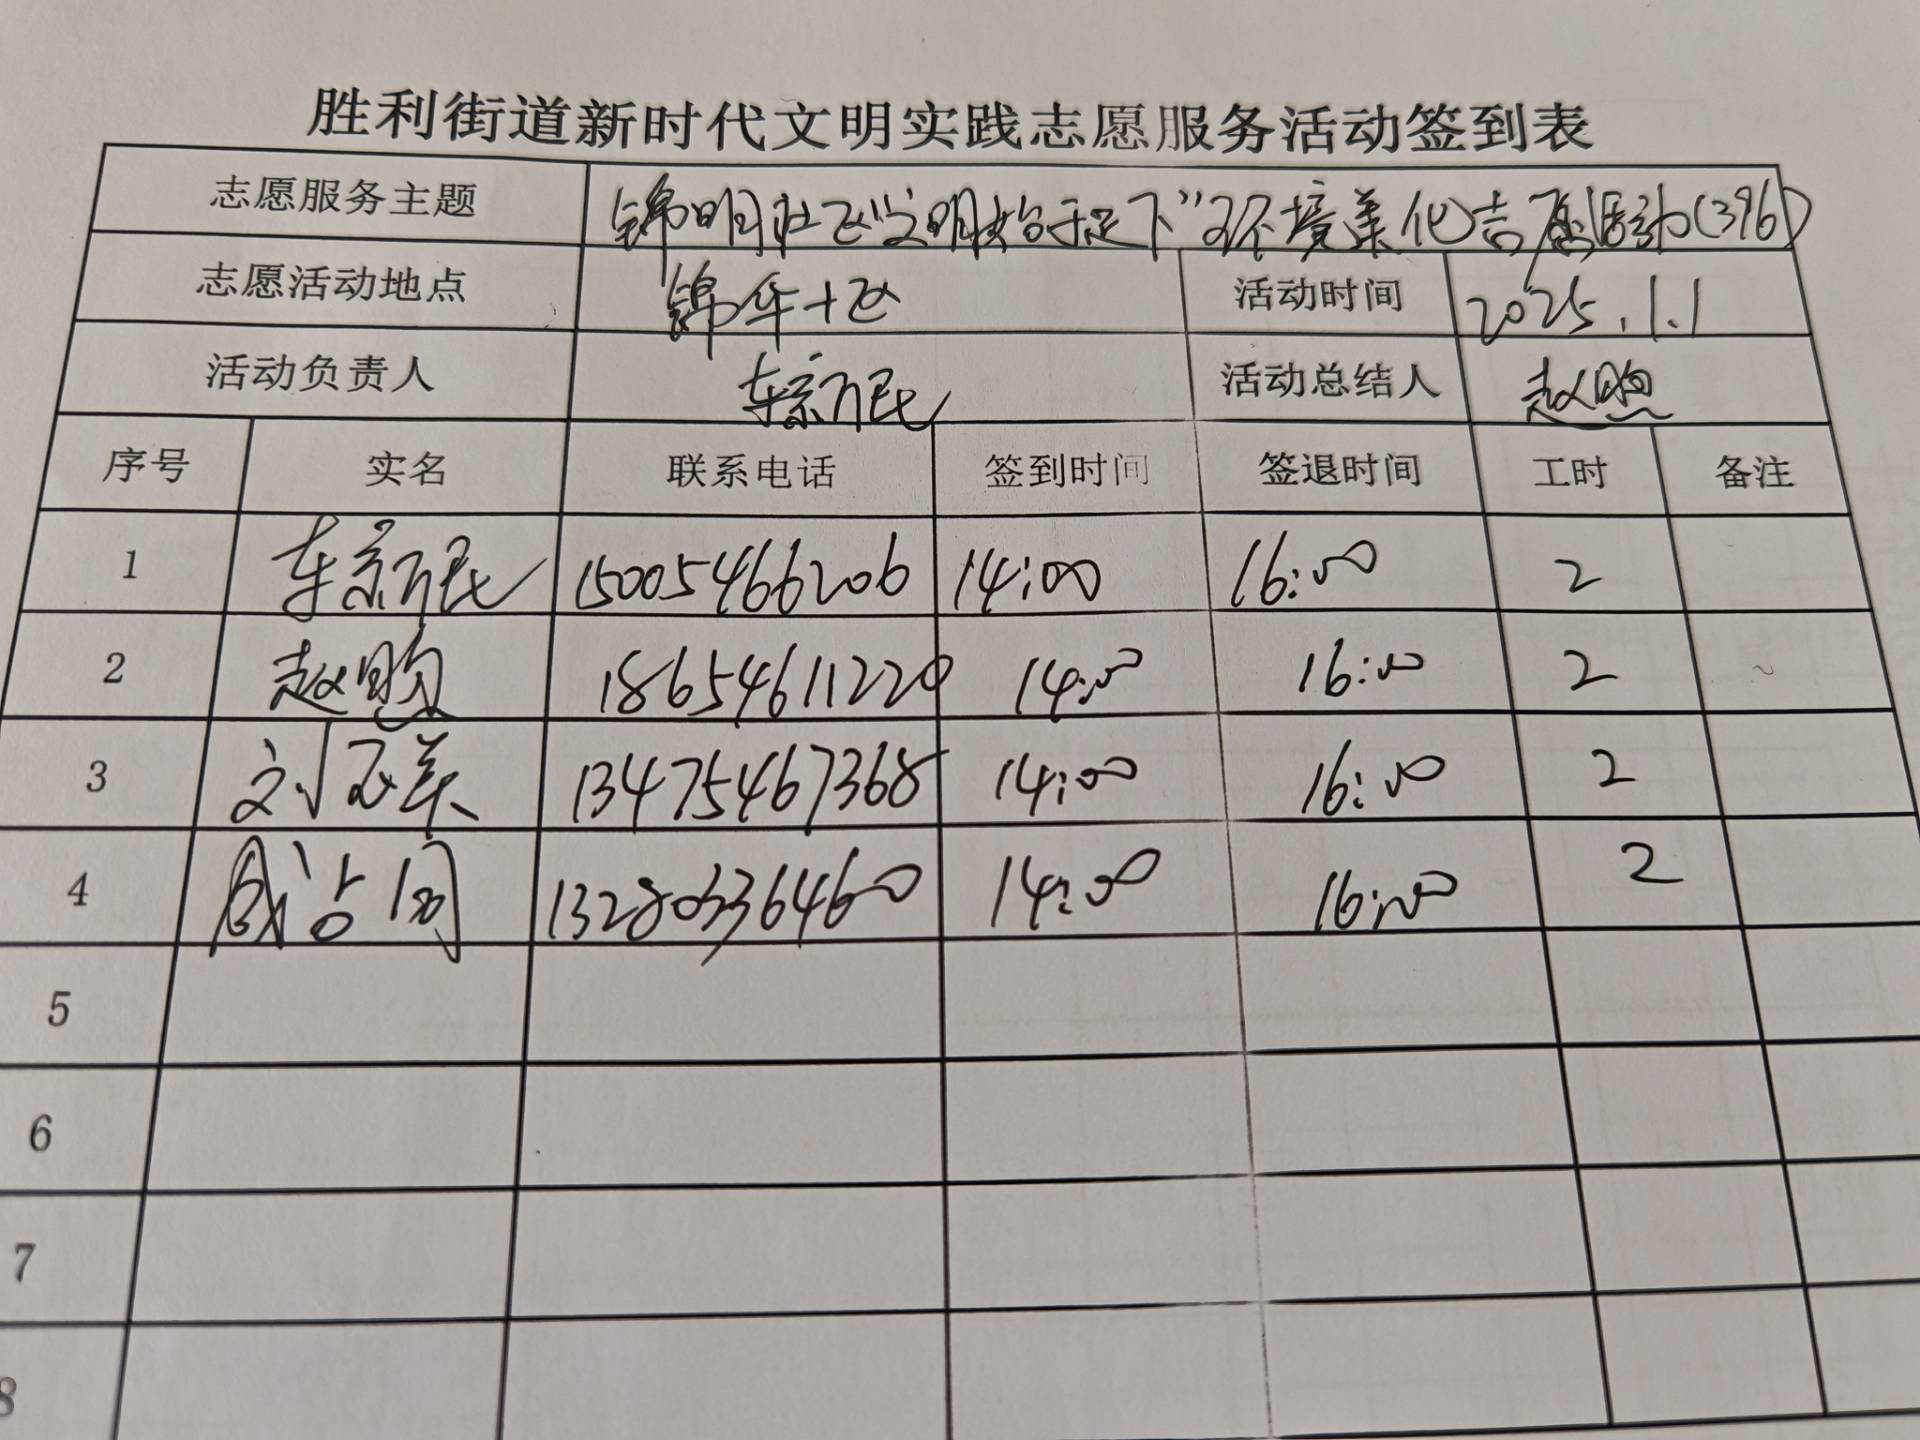 胜利街道新时代文明实践志愿服务活动签到表
志愿服务主题 锦明社区"文明始于足下"环境美化志愿活动(396)
志愿活动地点 锦华十区 活动时间 2025.1.1
活动负责人 活动总结人 赵
序号 实名 联系电话 签到时间 签退时间 工时 备注
1 15005466206 14:00 16:00 2
2 赵 18654611220 14:00 16:00 2
3 刘 美 13475467368 14:00 16:00 2
4 占 13280336460 14:00 16:00 2
5
6
7
8